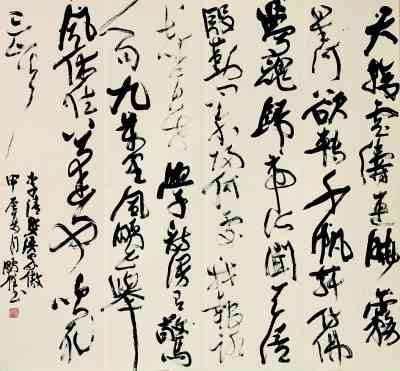 天接雲濤連曉霧
星河欲轉千帆舞仿佛
夢魂歸帝所聞天語
殷勤問我歸何處我報路
長嗟日暮學詩謾有驚
人句九萬里風鵬正舉
風休住蓬舟吹取
三山去
李清照漁家傲
甲月鵬書